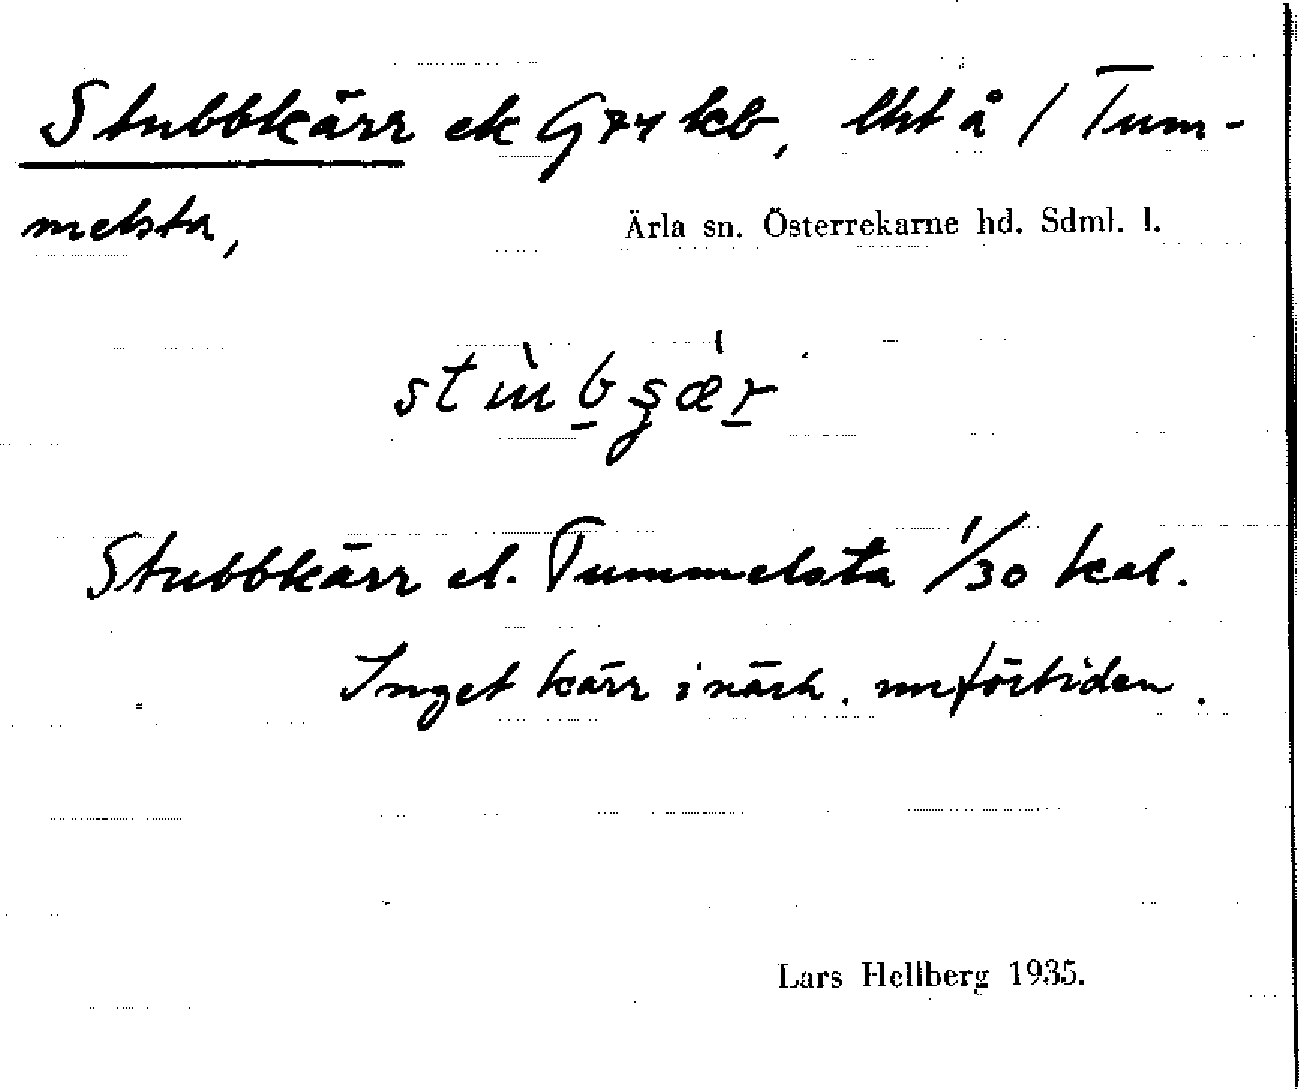 Stubbkärr ek G74 kb, lht å / Tum-
melsta,
Ärla sn. Österrekarne hd. Sdml. l.
Stubbkärr el. Tummelsta 1/30 kal.
Inget kärr i närh. nuförtiden.
Lars Hellberg 1935.